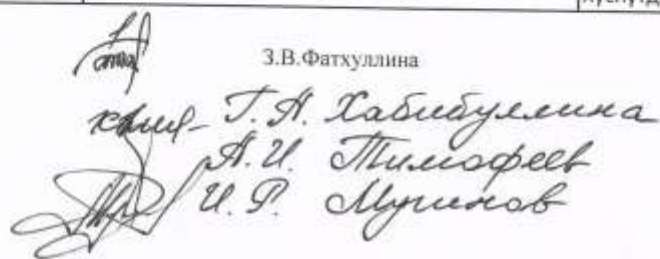 З.В.Фатхуллина
Г.А. Хабибуллина
А.И. Тимофеев
И.Р. Муринов